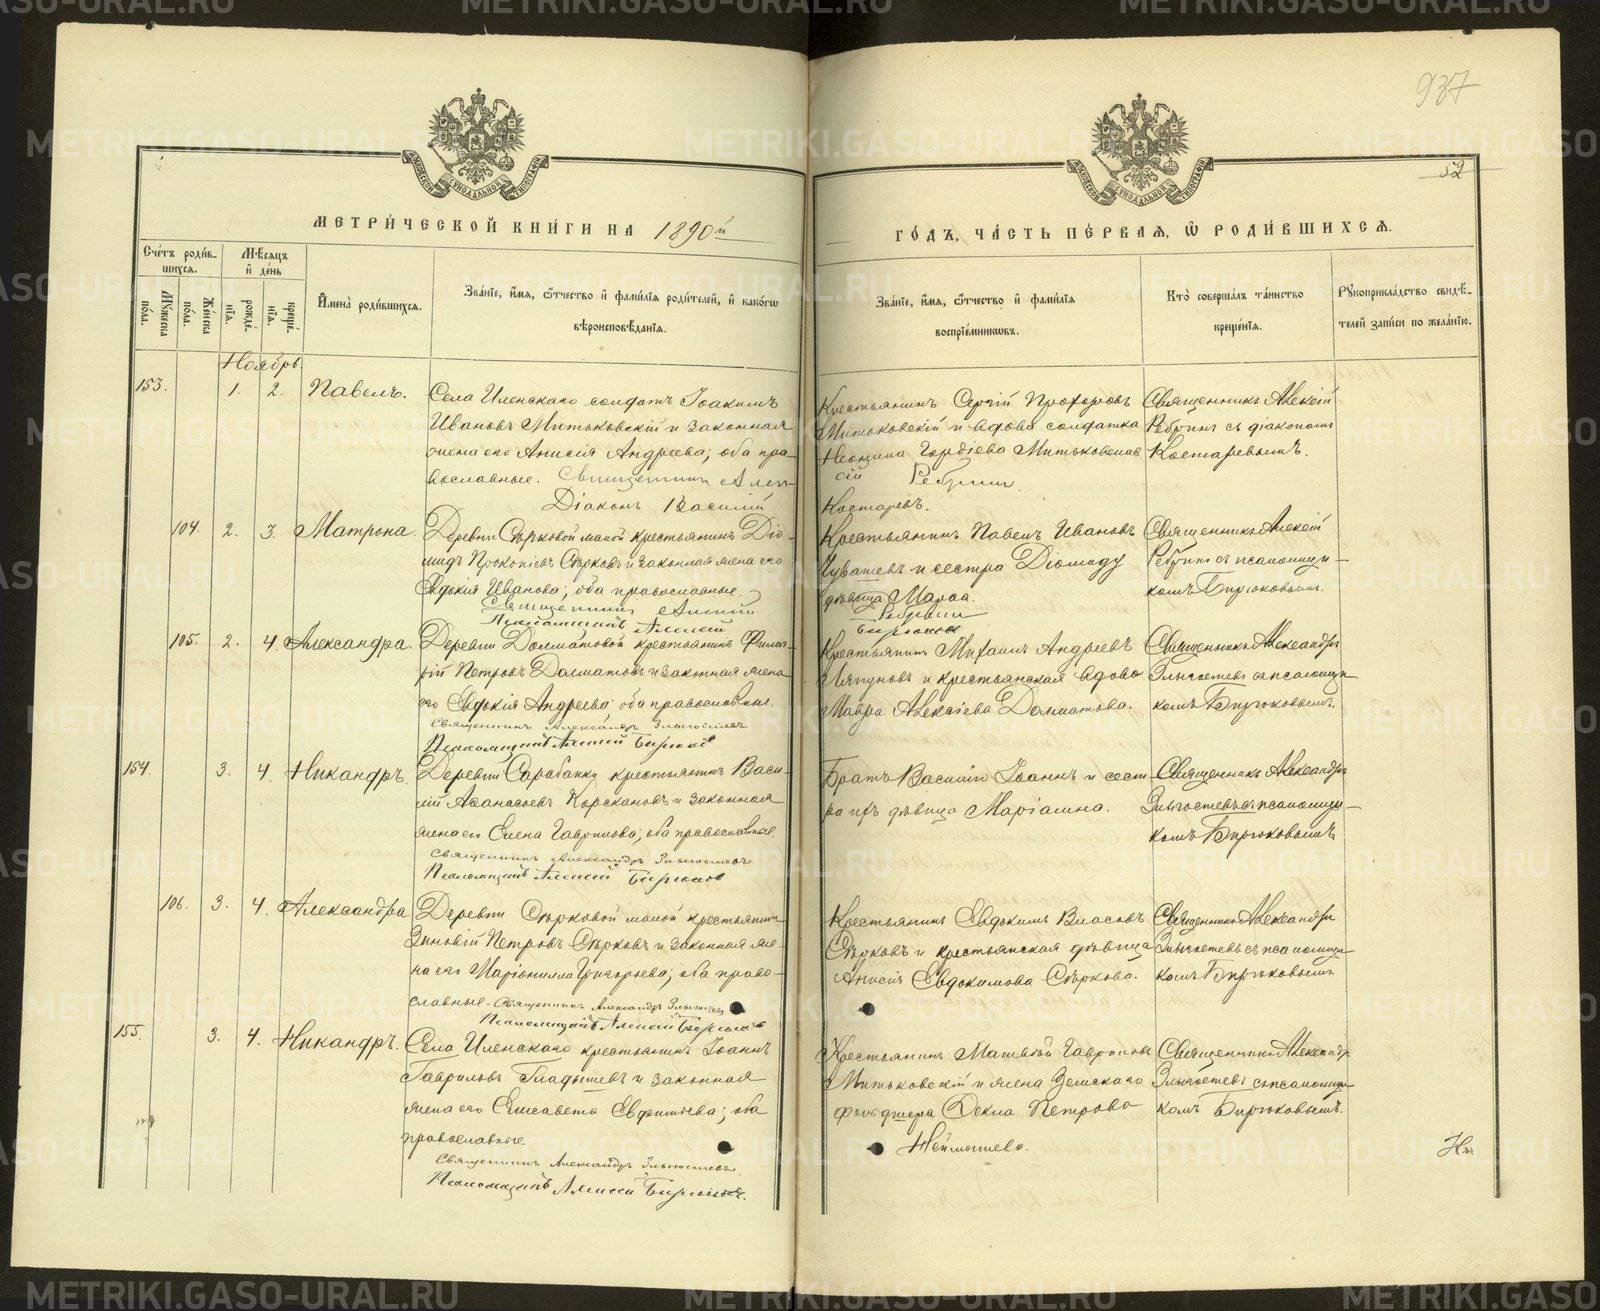 937
52
МОСКОВСКОЙ СѴНОДАЛЬНОЙ ТИПОГРАФІИ
МОСКОВСКОЙ СѴНОДАЛЬНОЙ ТИПОГРАФІИ
МЕТРИ́ЧЕСКОЙ КНИ́ГИ НА 1890й
ГО́ДЪ, ЧА́СТЬ ПЕ́РВАЯ, Ѡ РОДИ́ВШИХСЯ.
Сче́тъ роди́в-
шихся.
Мѣ́сяцъ
и҆ де́нь
Му́жеска по́ла.
Же́нска по́ла.
рожде́нїѧ.
креще́нїѧ.
И҆мена̀ роди́вшихся.
Зва́нїе, и҆́мѧ, ѻ҆́тчество и҆ фами́лїѧ роди́телей, и҆ како́гѡ
вѣроисповѣ́данїѧ.
Зва́нїе, и҆́мѧ, ѻ҆́тчество и҆ фами́лїѧ
воспрїе́мникѡвъ.
Кто̀ соверша́лъ та́инство
креще́нїѧ.
Рꙋкоприкла́дство свидѣ́-
телей за́писи по жела́нїю.
Ноябрь
153. 1. 2. Павелъ.
Села Иленскаго солдатъ Іоакимъ
Ивановъ Митьковскій и законная
жена его Анисія Андреева; оба пра-
вославные. Священникъ Алек-
Діаконъ Василий
Крестьянинъ Сергій Прохоровъ
Митьковскій и вдова солдатка
Гордіева Митьковская
сій Ребринъ
Костаревъ.
Священникъ Алексій
Ребринъ съ діакономъ
Костаревымъ.
104. 2. 3. Матрона.
Деревни Сѣрковой малой крестьянинъ Діо-
мидъ Прокопіевъ Сѣрковъ и законная жена его
Евдокія Иванова; оба православные.
Священникъ Алексій
Псаломщикъ Алексій
Крестьянинъ Павелъ Ивановъ
Чувашевъ и сестра Діомиду
дѣвица Марѳа.
Ребринъ
Бирюковъ
Священникъ Алексій
Ребринъ съ псаломщи-
комъ Бирюковымъ.
105. 2. 4. Александра.
Деревни Долматовой крестьянинъ
рій Петровъ Долматовъ и законная жена
его Евдокія Андреева; оба православные.
Священникъ Александръ Злыгостевъ
Псаломщикъ Алексій Бирюковъ
Крестьянинъ Михаилъ Андреевъ
Ляпуновъ и крестьянская вдова
Мавра Алексіева Долматова.
Священникъ Александръ
Злыгостевъ съ псаломщи-
комъ Бирюковымъ.
154. 3. 4. Никандръ.
Деревни Сарабанки крестьянинъ Васи-
лій Аѳанасіевъ Корскановъ и законная
жена его Елена Гаврилова; оба православные.
Священникъ Александръ Злыгостевъ
Псаломщикъ Алексій Бирюковъ
Братъ Василію Іоаннъ и сест-
ра ихъ дѣвица Маріамна.
Священникъ Александръ
Злыгостевъ съ псаломщи-
комъ Бирюковымъ
106. 3. 4. Александра
Деревни Сѣрковой малой крестьянинъ
Зиновій Петровъ Сѣрковъ и законная же-
на его Маріонилла Григорьева; оба право-
славные. Священникъ Александръ Злыгостевъ
Псаломщикъ Алексій Бирюковъ
Крестьянинъ Евдокимъ Власовъ
Сѣрковъ и крестьянская дѣвица
Анисія Евдокимова Сѣркова.
Священникъ Александръ
Злыгостевъ съ псаломщи-
комъ Бирюковымъ
155. 3. 4. Никандръ.
Села Иленскаго крестьянинъ Іоаннъ
Гавриловъ Гладышевъ и законная
жена его Елисавета Евфимьева; оба
православные.
Священникъ Александръ Злыгостевъ.
Псаломщикъ Алексій Бирюковъ.
Крестьянинъ Матвѣй Гавриловъ
Митьковскій и жена Земскаго
фельдшера Ѳекла Петрова
Неймышева.
Священникъ Александръ
Злыгостевъ съ псаломщи-
комъ Бирюковымъ.
METRIKI.GASO-URAL.RU